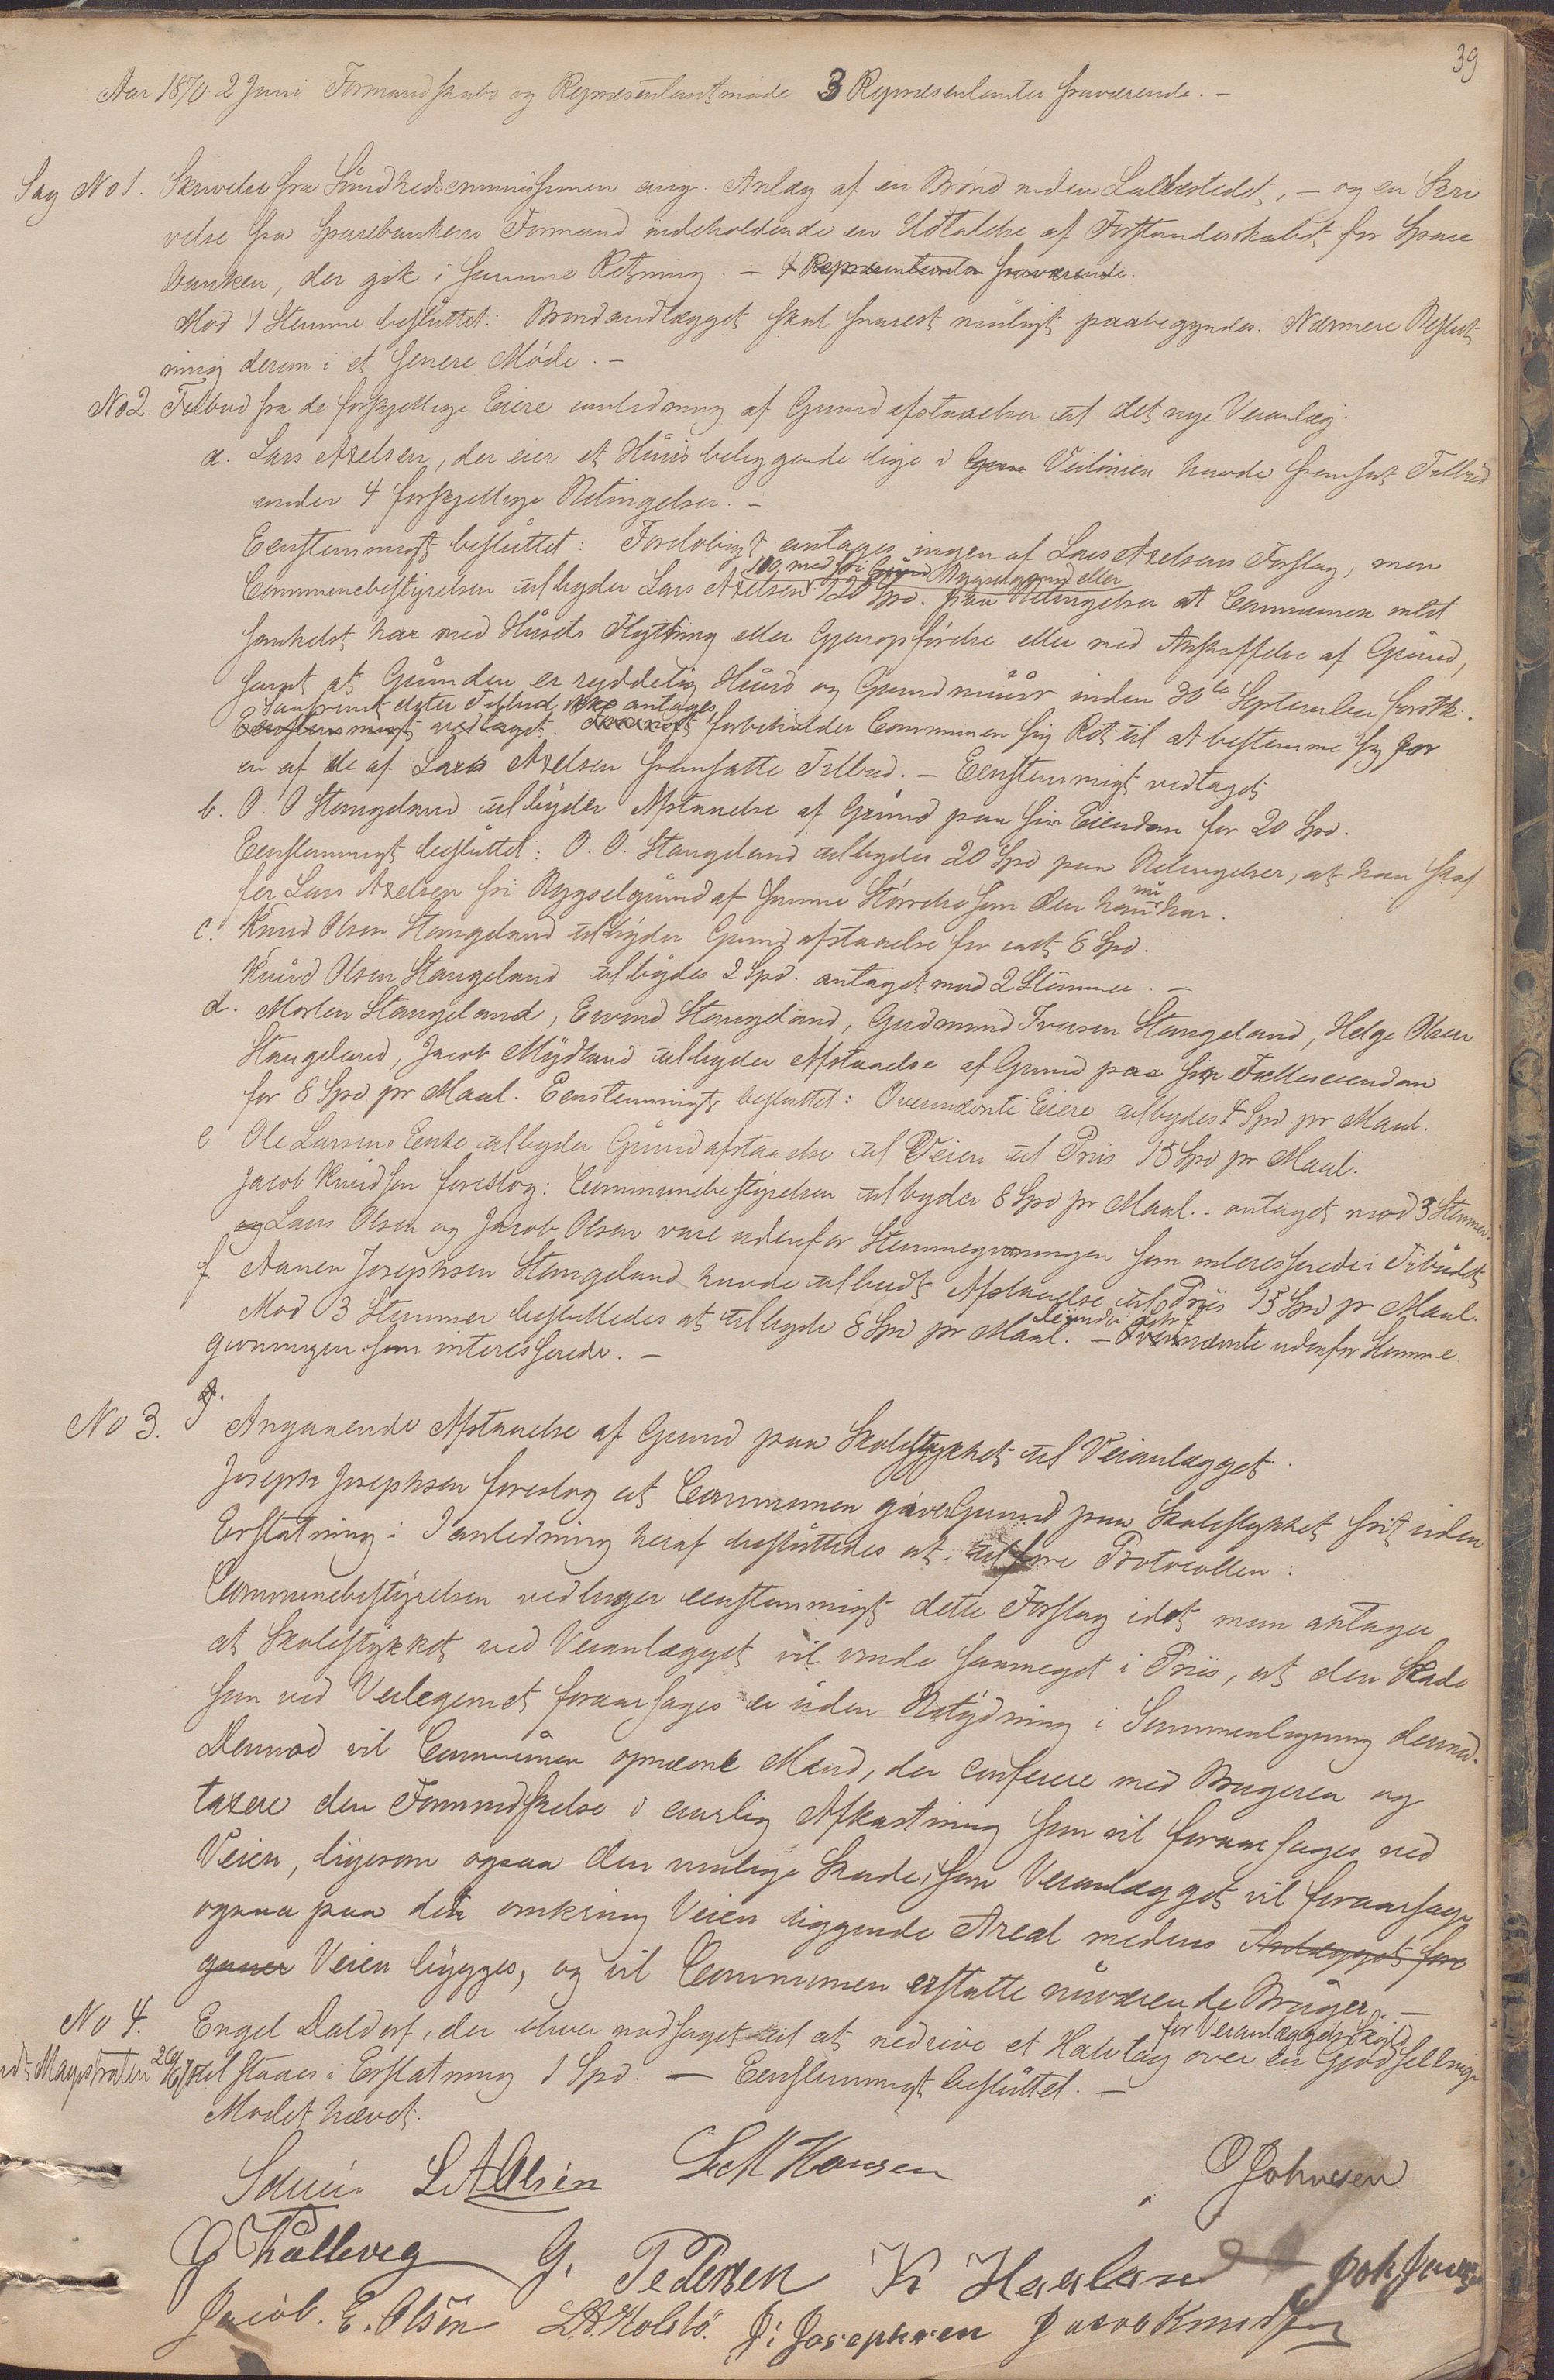 39
Aar 1870 2 Juni Formandskabs og Repræsentantmøde 3 Repræsentanter fraværende. –
Sag No 1. Skrivelse fra Sundhedscommissionen ang. Anlæg af en Brønd neden Ladestedet, – og en Skri
velse fra Sparebankens Formand indeholdende en Udtalelse af Forstanderskabet for Spare
banken, der gik i samme Retning. – 4 Repræsentanter fraværende.
Mod 1 Stemme besluttet: Brøndanlægget skal snarest muligt paabegyndes. Nærmere Beslut
ning derom i et senere Møde. –
No 2. Tilbud fra de forskjellige Eiere anledning af Grundafstaaelser til det nye Veianlæg.
a. Lars Axelsen, der eier et Huus beliggende lige i Veilinien havde fremsat Tilbud
under 4 forskjellige Betingelser. –
Eenstemmigt besluttet: Foreløbigt antages ingen af Lars Axelsens Forslag, men
110 med fri Grund Bygselgrund eller
Communebestyrelsen tilbyder Lars Axelsen 120 Spd. paa Betingelser at Communen intet
somhelst har med Husets Flytning eller Gjenopførelse eller med Anskaffelse af Grund,
samt at Grunden er ryddelig Huus og Grundmuur inden 30te September førstk.
Saafremt dette Tilbud ikke antages
Eenstemmigt vedtaget. forbeholder Communen sig Ret til at bestemme sig for
en af de af Lars Axelsen fremsatte Tilbud. – Eenstemmigt vedtaget
b. O. O Stangeland tilbyder Afstaaelse af Grund paa sin Eiendom for 20 Spd.
Eenstemmigt besluttet: O. O. Stangeland tilbydes 20 Spd paa Betingelser, at han skaf
fer Lars Axelsen fri Bygselgrund af samme Størrelse som den han nu har.
c. Knud Olsen Stangeland tilbyder Grundafstaaelse for 8 Spd.
Knud Olsen Stangeland tilbydes 2 Spd. antaget mod 2 Stemmer. –
d. Morten Stangeland, Eivind Stangeland, Gudmund Iversen Stangeland, Helge Olsen
Stangeland, Jacob Mydland tilbyder Afstaaelse af Grund paa sin Fælleseiendom
for 8 Spd pr Maal. Eenstemmigt besluttet: Ovennævnte Eiere tilbydes 4 Spd pr Maal.
e Ole Larsens Enke tilbyder Grundafstaaelse til Veien til Priis 15 Spd pr Maal.
Jacob Knudsen foreslog: Communebestyrelsen tilbyder 8 Spd pr Maal. – antaget mod 3 Stemmer.
og Lars Olsen og Jacob Olsen vare udenfor Stemmegivningen som interesserede i Tilbudet
f. Aanen Josephsen Stangeland havde tilbudt Afstaaelse til Priis 15 Spd pr Maal.
Mod 3 Stemmer besluttedes at tilbyde 8 Spd pr Maal. – Ovennævnte udenfor Stemme
givningen som interesserede. –
No 3. Angaaende Afstaaelse af Grund paa Skolestykket til Veianlægget.
Joseph Josephsen foreslog at Communen gaver Grund paa Skolestykket frit uden
Erstatning: I anledning heraf besluttedes at tilføre Protocollen:
Communebestyrelsen vedtager eenstemmigt dette Forslag idet man antager
at Skolestykket ved Veianlægget vil vinde saameget i Priis, at den Skade
som ved Veilegemet foraarsages er uden Betydning i Sammenligning dermed.
Derimod vil Communen opnævne Mænd, der conferere med Brugeren og
taxere den Formindskelse i aarlig Afkastning som vil foraarsages ved
Veien, ligesom ogsaa den mulige Skade, som Veianlægget vil foraarsage
ogsaa paa den omkring Veien liggende Areal medens Anlægget fore
gaaer Veien bygges, og vil Communen erstatte nuværende Bruger. –
for Veianlæggets Skyld
No 4. Engel Daldorf, der bliver nødsaget til at nedrive et Halvtag over en Gjødselbinge
Magistraten tilstaaes i Erstatning 1 Spd. – Eenstemmigt besluttet. –
Mødet hævet.
L A Olsen Hansen O Johnsen
G. Pedersen K Haaland
Jacob. E. Olsen L. Holstø. J. Josephsen Jacob Knudsen